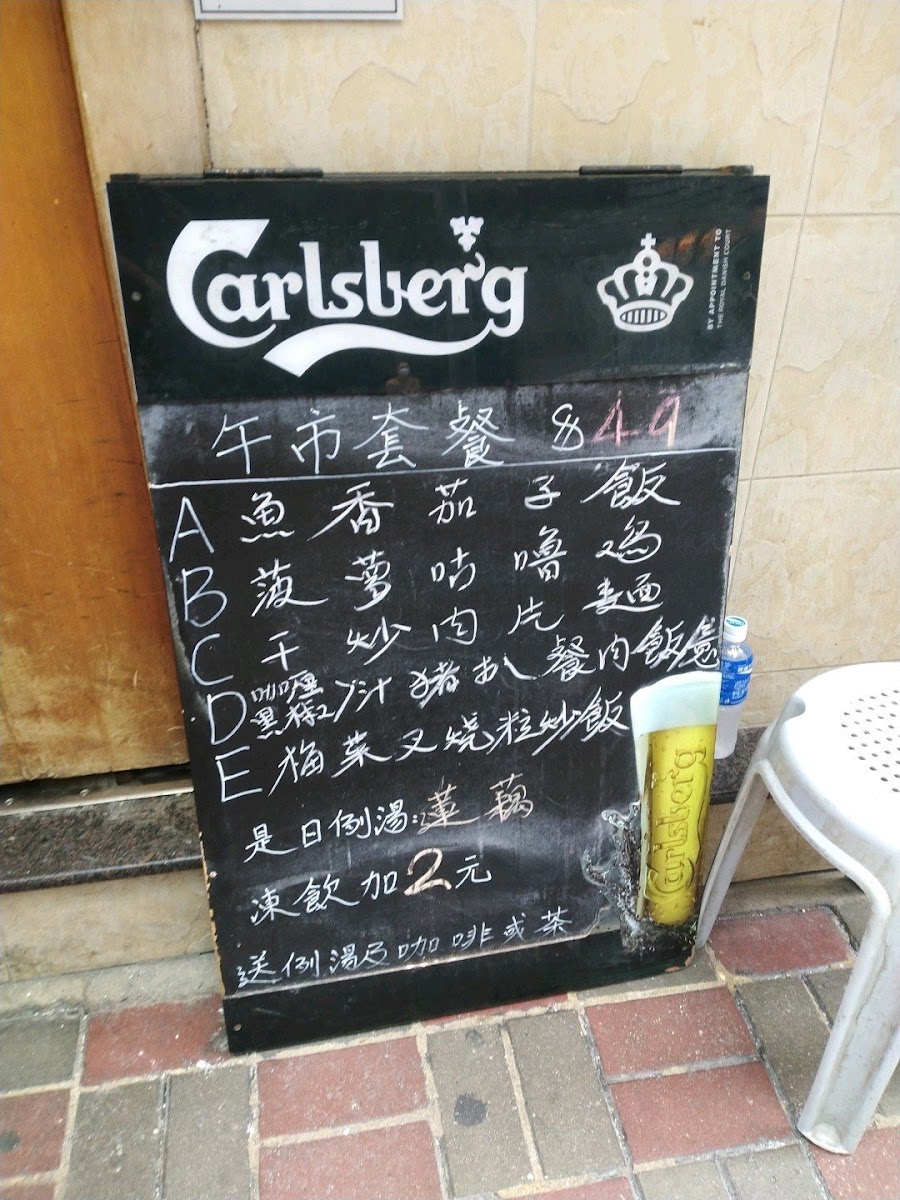 Carlsberg
BY APPOINTMENT TO
THE ROYAL DANISH COURT
午市套餐 $49
A 魚香茄子飯
B 菠蘿咕嚕鸡
C 干炒肉片麵
D 咖喱
黑椒汁猪扒餐肉飯
E 梅菜叉烧粒炒飯
是日例湯:蓮藕
凍飲加2元
送例湯及咖啡或茶
Carlsberg